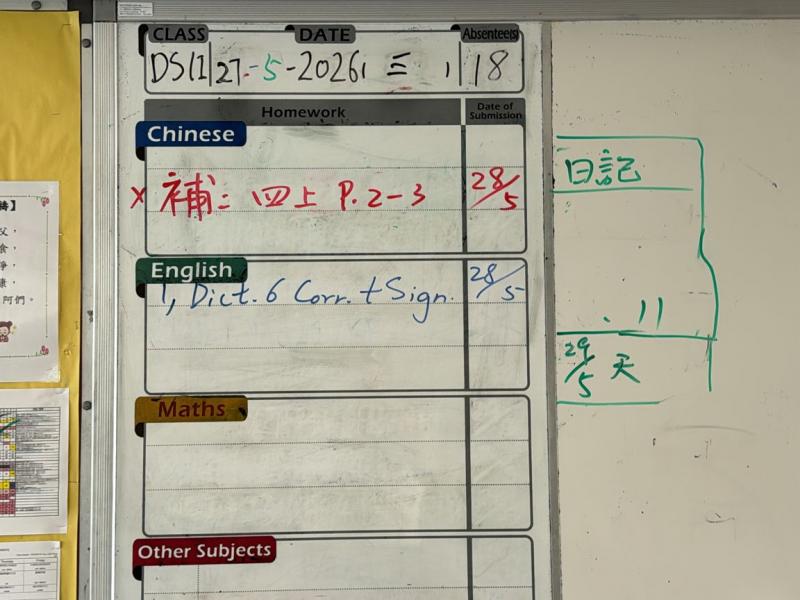 CLASS DATE Absentee(s)
DS(1) 27.-5-2026, 三 , 18
Homework Date of Submission
Chinese
× 補: 四上 P.2-3 28/5
English
1, Dict. 6 Corr. + Sign. 28/5
Maths
Other Subjects
日記
. 11
29/5 天
父，
食，
淨，
康，
阿們。